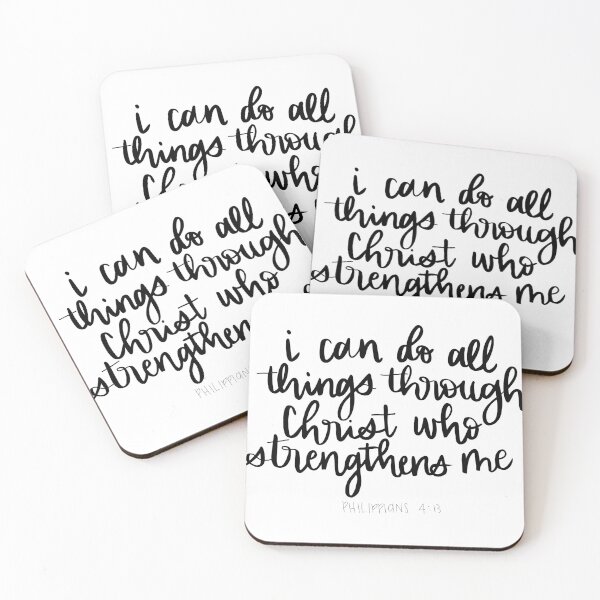 i can do all
things through
Christ who
i can do all
things through
Christ who
strengthens me
i can do all
things through
Christ who
strengthens
PHILIPPIANS
i can do all
things through
Christ who
strengthens me
PHILIPPIANS 4:13